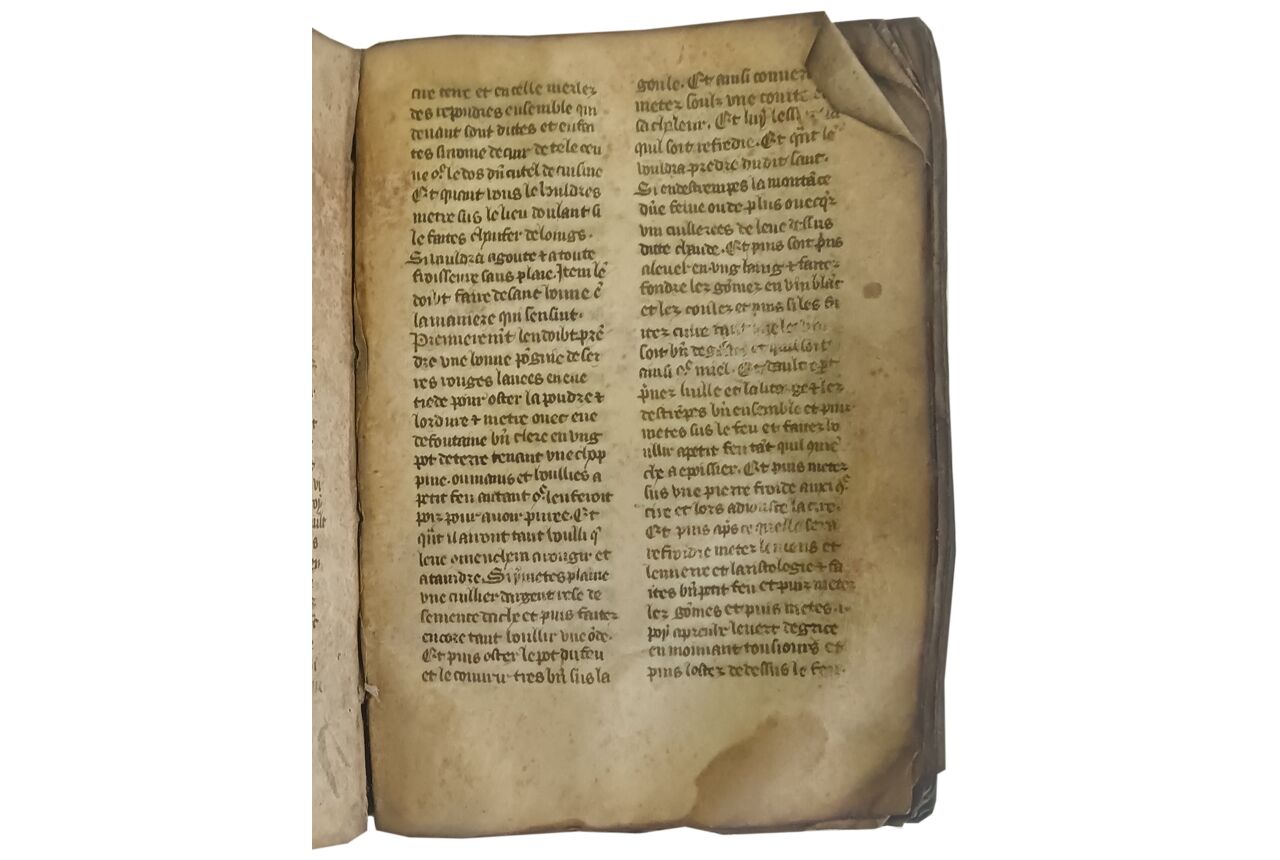 cue tene et en celle merlez
des respondres ensemble qui
devant sont dittes et en fin
tes si come de cuir de tele ceu
ue q̃ le dos dũ cutel de cuisine
Et quant vous le vouldres
metre sus le lieu doulant si
le faites chaufer de loings.
Si vauldra a goute & a toute
froisseure sans plaie. Item lẽ
doibt faire desant bonne ẽ
la maniere qui sensiut.
Premieremt̃ len doibt prẽ
dre une bonne poĩgnie de ser
res rouges lances en eue
tiede pour oster la poudre &
lordure & metre ovec eue
de fontaine bñ clere en ung
pot de terre tenant une chop
pine. ou mains et boullies a
petit feu autant q̃ len feroit
pois pour avoir puree. Et
qñt il auront tant boulli q̃
leue comenchera a rougir et
a taindre. Si y metes plaine
une cuillier dargent rese de
semence dache et puis faitez
encore tant boullir une õde.
Et puis oster le pot du feu
et le couvrir tres bñ sus la
goule. Et ainsi couvert
metez soulz une courte
sa chaleur. Et luy less
qui soit refredie. Et qñt le
vouldra prẽdre du dit saut.
Si en destrempes la montãce
dũe feive ou de plus ovecq̃z
viii cuillerees de leue dessus
ditte chaude. Et puis soit p̃ns
a lever en ung baing & faitez
fondre lez gõmez en vin blãc
et lez coulez et puis si les fai
ites cuire tant
soit bñ degaste et quil soit
ainsi q̃ miel. Et daultre part
p̃nez luille et la litarge & lez
destrẽpes bñ ensemble et puis
metes sus le feu et faitez bo
ullir a petit feu tãt quil quiẽ
che a espoissier. Et puis metez
sus une pierre froide auxi q̃
cire et lors adiouste la cire.
Et puis ap̃s ce quelle sera
refroidie metez lencens et
le mierre et laristologie & fa
ites bñ petit feu et puis metez
lez gõmes et puis metes. i.
poy aprenlz le vert de grice
en mouvant tousiours et
puis lostez de dessus le feu.